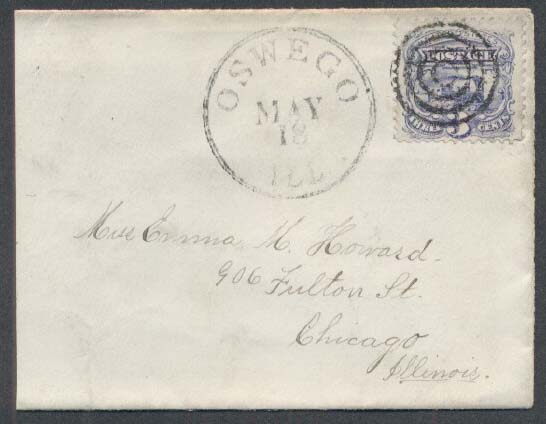 OSWEGO
MAY
18
ILL
POSTAGE
THREE 3 CENTS
Miss Emma M. Howard.
906 Fulton St.
Chicago
Illinois.